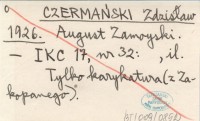 CZERMAŃSKI Zdzisław
1926. August Zamoyski.
– IKC 17, nr 32: , il.
Tylko karykatura (z Za-
kopanego).